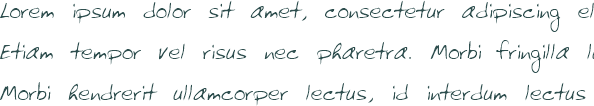 Lorem ipsum dolor sit amet, consectetur adipiscing el
Etiam tempor vel risus nec pharetra. Morbi fringilla l
Morbi hendrerit ullamcorper lectus, id interdum lectus